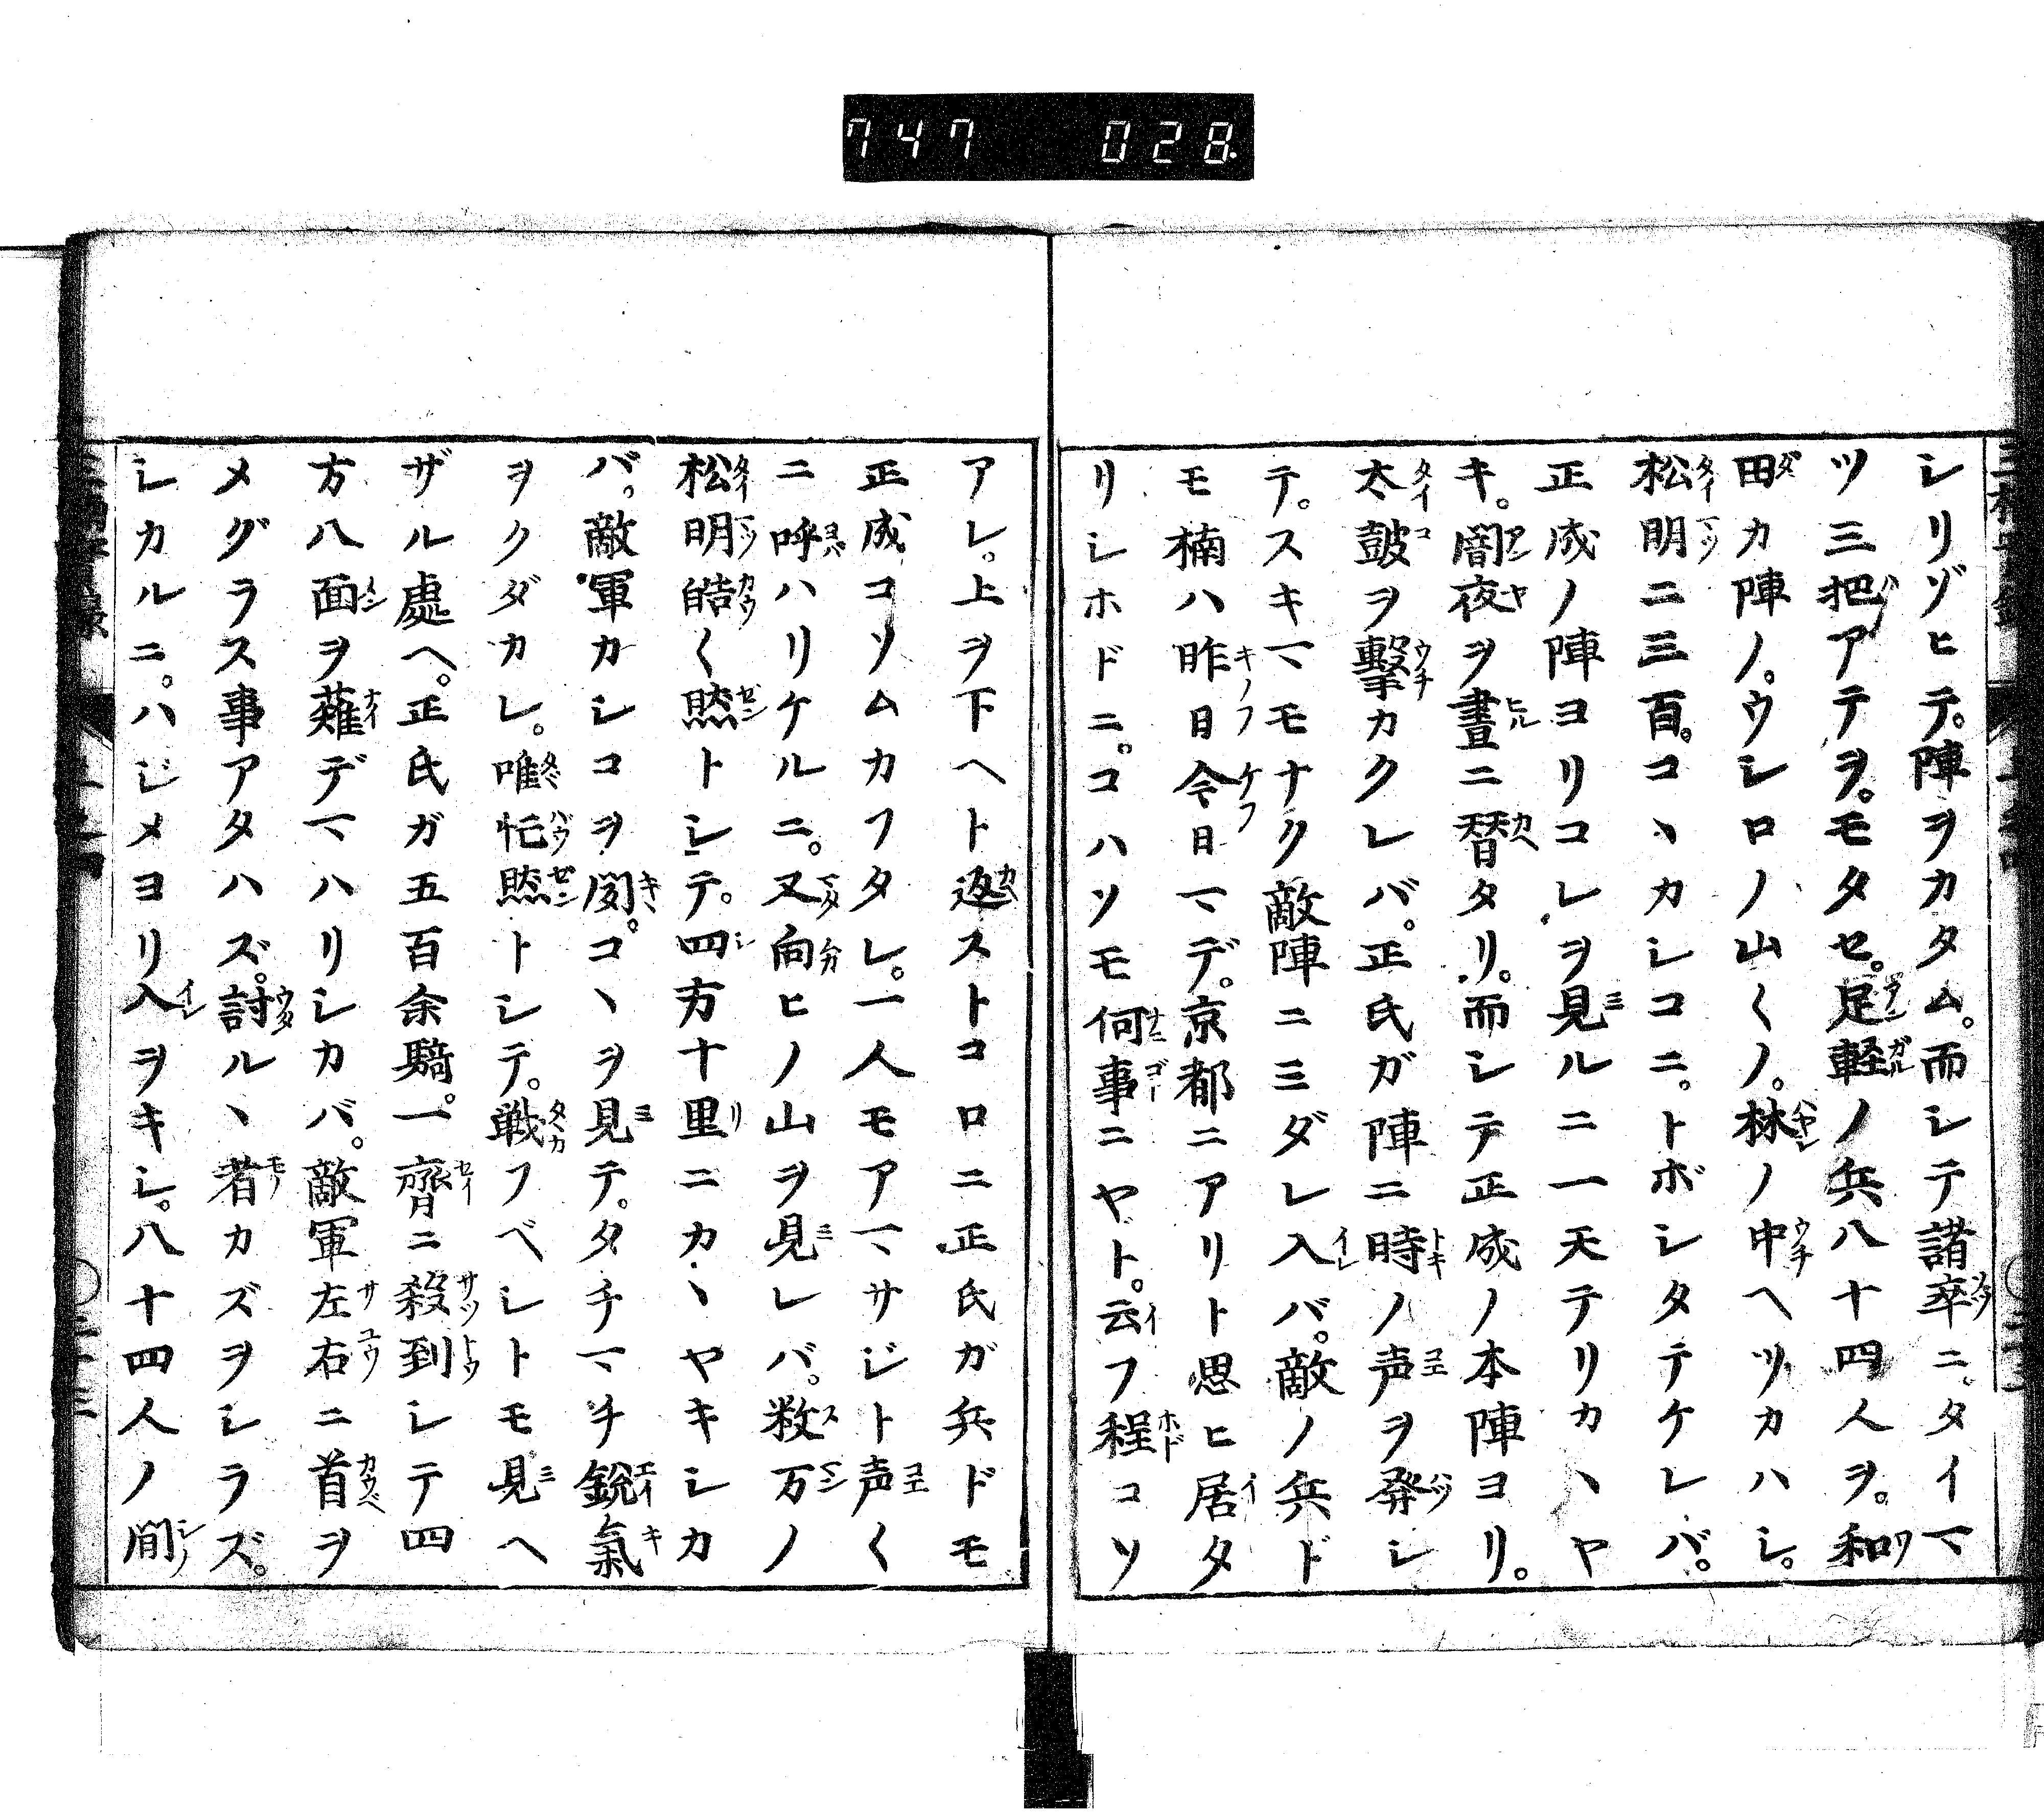 747 028.
シリゾヒテ。陣ヲカタム。而シテ諸卒ニ。タイマ
ツ三把アテヲ。モタセ。足軽ノ兵八十四人ヲ。和
田カ陣ノ。ウシロノ山〱ノ。林ノ中ヘツカハシ。
松明二三百。コヽカシコニ。トボシタテケレバ。
正成ノ陣ヨリコレヲ見ルニ一天テリカヽヤ
キ。闇夜ヲ晝ニ替タリ。而シテ正成ノ本陣ヨリ。
太鼓ヲ擊カクレバ。正氏ガ陣ニ時ノ声ヲ発シ
テ。スキマモナク敵陣ニミダレ入バ。敵ノ兵ド
モ楠ハ昨日今日マデ。京都ニアリト思ヒ居タ
リシホドニ。コハソモ何事ニヤト。云フ程コソ
アレ。上ヲ下ヘト返ストコロニ正氏ガ兵ドモ
正成コソムカフタレ。一人モアマサジト声〱
ニ呼ハリケルニ。又向ヒノ山ヲ見レバ。数万ノ
松明皓〱然トシテ。四方十里ニカヽヤキシカ
バ。敵軍カシコヲ聞。コヽヲ見テ。タチマチ銳氣
ヲクダカレ。唯忙然トシテ。戦フベシトモ見ヘ
ザル處ヘ。正氏ガ五百余騎。一齊ニ殺到シテ四
方八面ヲ薙デマハリシカバ。敵軍左右ニ首ヲ
メグラス事アタハズ。討ルヽ者カズヲシラズ。
シカルニ。ハジメヨリ入ヲキシ。八十四人ノ間